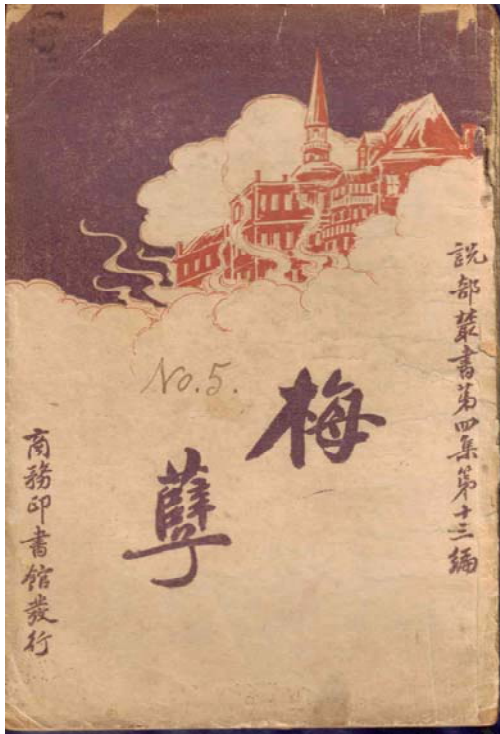 說部叢書第四集第十三編
梅孽
No.5.
商務印書館發行